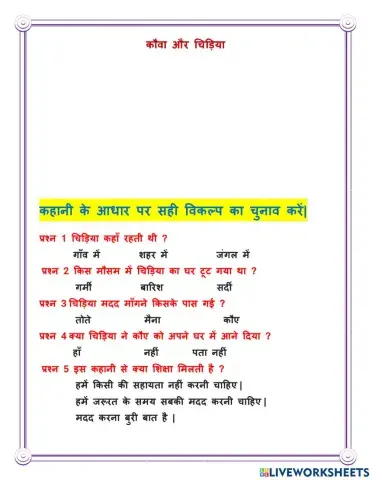 कौवा और चिड़िया
कहानी के आधार पर सही विकल्प का चुनाव करें|
प्रश्न 1 चिड़िया कहाँ रहती थी ?
गाँव में शहर में जंगल में
प्रश्न 2 किस मौसम में चिड़िया का घर टूट गया था ?
गर्मी बारिश सर्दी
प्रश्न 3 चिड़िया मदद माँगने किसके पास गई ?
तोते मैना कौए
प्रश्न 4 क्या चिड़िया ने कौए को अपने घर में आने दिया ?
हाँ नहीं पता नहीं
प्रश्न 5 इस कहानी से क्या शिक्षा मिलती है ?
हमें किसी की सहायता नहीं करनी चाहिए|
हमें जरूरत के समय सबकी मदद करनी चाहिए|
मदद करना बुरी बात है |
LIVEWORKSHEETS